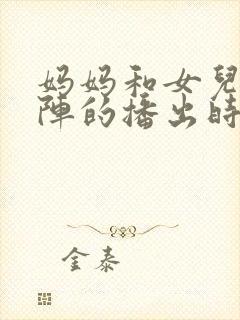 妈妈和女兒
陣的播出時
金泰